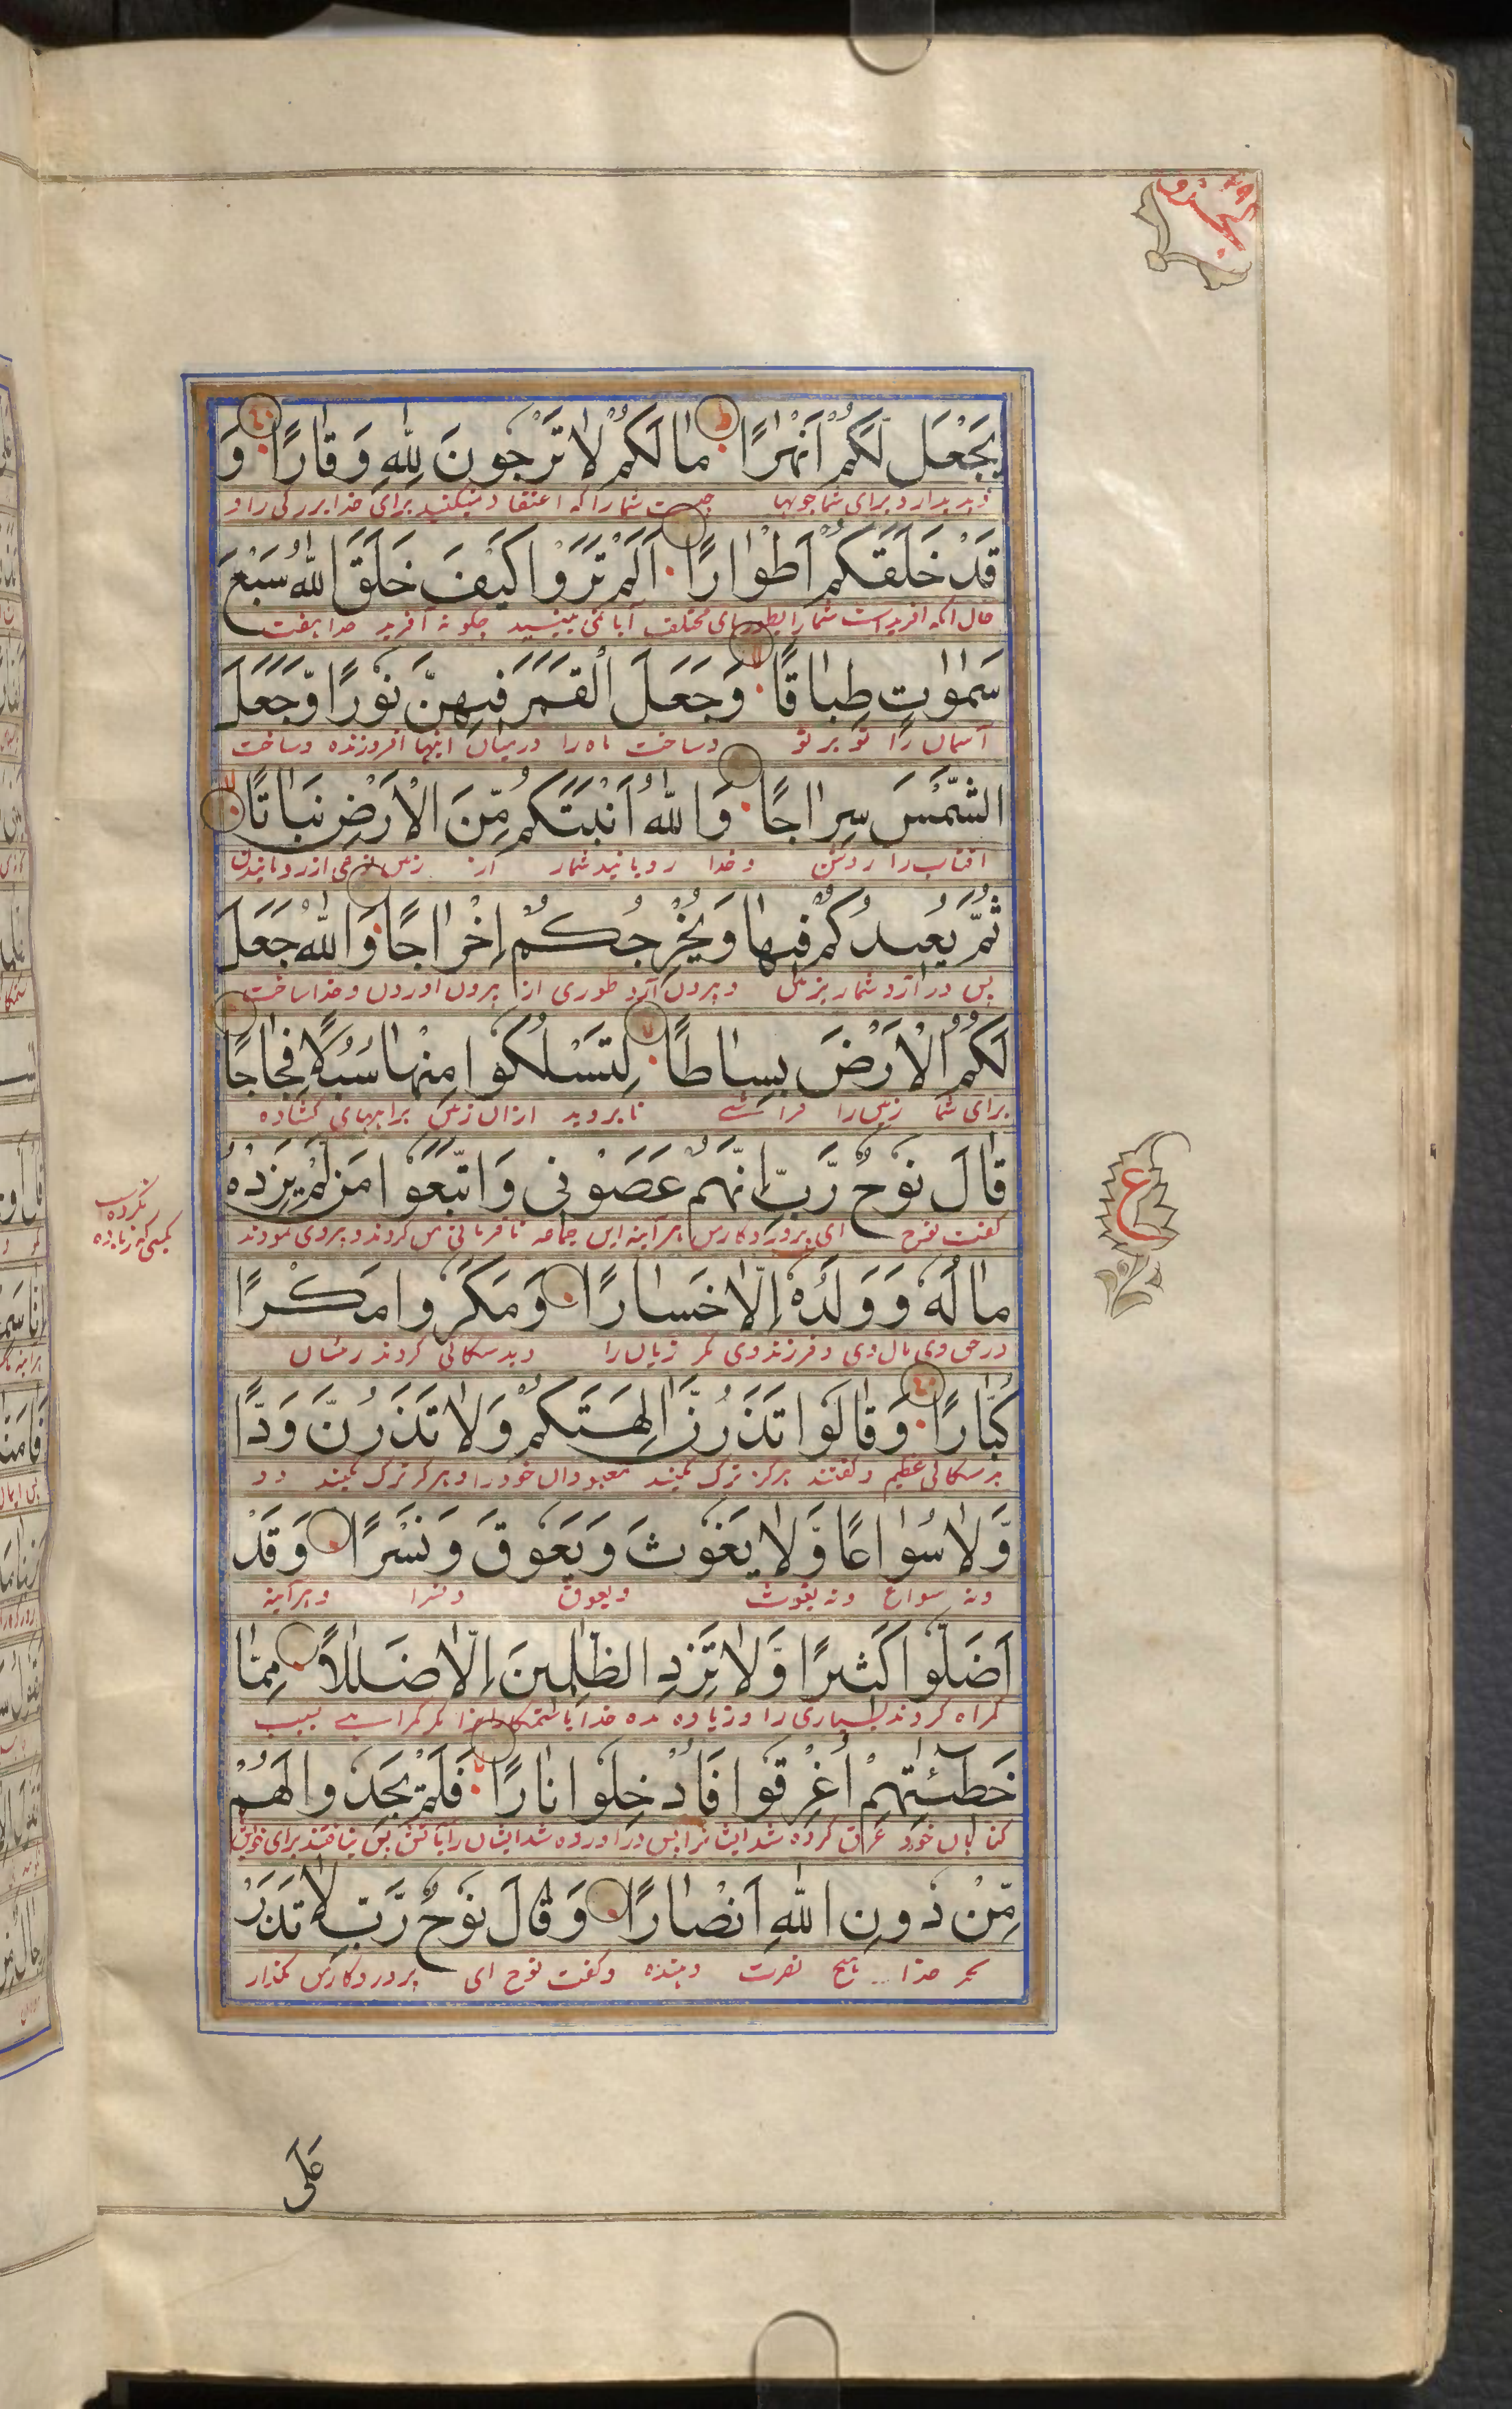 الجزو ۲۹
يَجْعَل لَكُمْ اَنْهٰرًا مٰا لَكُمْ لٰا تَرْجُونَ لِلّٰهِ وَقٰارًا وَ
پدید آرد برای شما جویها چیست شما را که اعتقاد نمیکنید برای خدا بزرکی را و
قَدْ خَلَقَكُمْ اَطْوٰارًا اَلَمْ تَرَوْا كَيْفَ خَلَقَ اللّٰهُ سَبْعَ
حال آنکه آفریده است شما را بطورهای مختلف آیا نمی بینید چکونه آفرید خدا هفت
سَمٰوٰتٍ طِبٰاقًا وَجَعَلَ الْقَمَرَ فِيهِنَّ نُورًا وَّجَعَلَ
آسمان را تو بر تو و ساخت ماه را درمیان اینها افروزنده و ساخت
الشَّمْسَ سِرٰاجًا وَاللّٰهُ اَنْبَتَكُمْ مِّنَ الْاَرْضِ نَبٰاتًا
آفتاب را روشن و خدا رویانید شما را از زمین نوعی از رویانیدن
ثُمَّ يُعِيدُكُمْ فِيهٰا وَيُخْرِجُكُمْ اِخْرٰاجًا وَاللّٰهُ جَعَلَ
پس در آرد شما را بزمین و بیرون آرد طوری از بیرون آوردن و خدا ساخت
لَكُمُ الْاَرْضَ بِسٰاطًا لِتَسْلُكُوا مِنْهٰا سُبُلًا فِجٰاجًا
برای شما زمین را فراشے تا بروید ازان زمین براههای کشاده
قٰالَ نُوحٌ رَّبِّ اِنَّهُمْ عَصَوْنِى وَاتَّبَعُوا مَن لَّمْ يَزِدْهُ
کفت نوح ای پروردکار من هر آینه این جماعه نافرمانی من کردند و پیروی نمودند
کسی که زیاده
نکرده
مٰالُهُ وَوَلَدُهُ اِلَّا خَسٰارًا وَمَكَرُوا مَكْرًا
در حق وی مال وی و فرزند وی مکر زیان را و بدسکالی کردند
كُبّٰارًا وَقٰالُوا تَذَرُنَّ اٰلِهَتَكُمْ وَلٰا تَذَرُنَّ وَدًّا
بدسکالی عظیم و کفتند هرکز ترک مکنید معبودان خود را و هرکز ترک مکنید ود
وَّلٰا سُوٰاعًا وَّلٰا يَغُوثَ وَيَعُوقَ وَنَسْرًا وَقَدْ
و نه سواع و نه یغوث و یعوق و نسر را و هر آینه
اَضَلُّوا كَثِيرًا وَّلٰا تَزِدِ الظّٰلِمِينَ اِلَّا ضَلٰلًا مِمّٰا
کمراه کردند بسیاری را و زیاده مده خدایا ستمکاران را مکر کمراهے بسبب
خَطِٓيـٰٔتِهِمْ اُغْرِقُوا فَاُدْخِلُوا نٰارًا فَلَمْ يَجِدُوا لَهُمْ
کناهان خود غرق کرده شد ایشانرا پس در آورده شد ایشان را بآتش پس نیافتند برای خویش
مِّنْ دُونِ اللّٰهِ اَنْصٰارًا وَقٰالَ نُوحٌ رَّبِّ لٰا تَذَرْ
بجز خدا هیچ نصرت دهنده و کفت نوح ای پروردکار من مکذار
ع
عَلَى